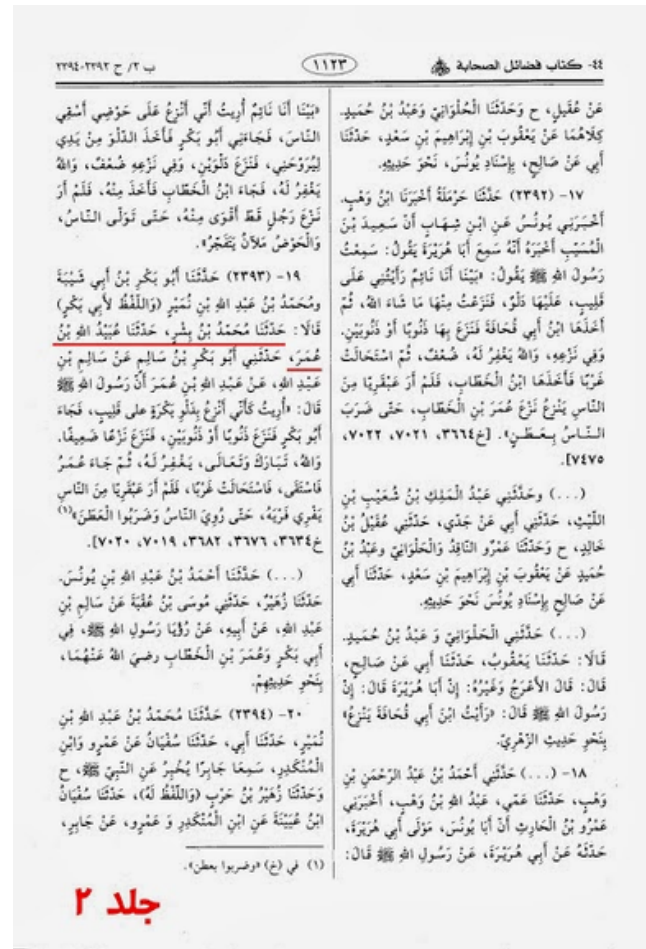 ٤٤- كتاب فضائل الصحابة
١١٢٣
ب ٢/ ح ٢٣٩٢-٢٣٩٤
عَنْ عُقَيْلٍ، ح وَحَدَّثَنَا الْحُلْوَانِيُّ وَعَبْدُ بْنُ حُمَيْدٍ.
كِلَاهُمَا عَنْ يَعْقُوبَ بْنِ إِبْرَاهِيمَ بْنِ سَعْدٍ، حَدَّثَنَا
أَبِي عَنْ صَالِحٍ، بِإِسْنَادِ يُونُسَ، نَحْوَ حَدِيثِهِ.
١٧- (٢٣٩٢) حَدَّثَنَا حَرْمَلَةُ أَخْبَرَنَا ابْنُ وَهْبٍ.
أَخْبَرَنِي يُونُسُ عَنِ ابْنِ شِهَابٍ أَنَّ سَعِيدَ بْنَ
الْمُسَيَّبِ أَخْبَرَهُ أَنَّهُ سَمِعَ أَبَا هُرَيْرَةَ يَقُولُ: سَمِعْتُ
رَسُولَ اللهِ ﷺ يَقُولُ: «بَيْنَا أَنَا نَائِمٌ رَأَيْتُنِي عَلَى
قَلِيبٍ، عَلَيْهَا دَلْوٌ، فَنَزَعْتُ مِنْهَا مَا شَاءَ اللهُ، ثُمَّ
أَخَذَهَا ابْنُ أَبِي قُحَافَةَ فَنَزَعَ بِهَا ذَنُوبًا أَوْ ذَنُوبَيْنِ.
وَفِي نَزْعِهِ، وَاللهُ يَغْفِرُ لَهُ، ضُعْفٌ، ثُمَّ اسْتَحَالَتْ
غَرْبًا فَأَخَذَهَا ابْنُ الْخَطَّابِ، فَلَمْ أَرَ عَبْقَرِيًا مِنَ
النَّاسِ يَنْزِعُ نَزْعَ عُمَرَ بْنِ الْخَطَّابِ، حَتَّى ضَرَبَ
النَّاسُ بِعَطَنٍ». [خ٣٦٦٤، ٧٠٢١، ٧٠٢٢،
٧٤٧٥].
(...) وَحَدَّثَنِي عَبْدُ الْمَلِكِ بْنُ شُعَيْبِ بْنِ
اللَّيْثِ، حَدَّثَنِي أَبِي عَنْ جَدِّي، حَدَّثَنِي عُقَيْلُ بْنُ
خَالِدٍ، ح وَحَدَّثَنَا عَمْرٌو النَّاقِدُ وَالْحُلْوَانِيُّ وعَبْدُ بْنُ
حُمَيْدٍ عَنْ يَعْقُوبَ بْنِ إِبْرَاهِيمَ بْنِ سَعْدٍ، حَدَّثَنَا أَبِي
عَنْ صَالِحٍ بِإِسْنَادِ يُونُسَ نَحْوَ حَدِيثِهِ.
(...) حَدَّثَنِي الْحُلْوَانِيُّ وَ عَبْدُ بْنُ حُمَيْدٍ.
قَالَا: حَدَّثَنَا يَعْقُوبُ، حَدَّثَنَا أَبِي عَنْ صَالِحٍ،
قَالَ: قَالَ الْأَعْرَجُ وَغَيْرُهُ: إِنَّ أَبَا هُرَيْرَةَ قَالَ: إِنَّ
رَسُولَ اللهِ ﷺ قَالَ: «رَأَيْتُ ابْنَ أَبِي قُحَافَةَ يَنْزِعُ»
بِنَحْوِ حَدِيثِ الزُّهْرِيِّ.
١٨- (...) حَدَّثَنِي أَحْمَدُ بْنُ عَبْدِ الرَّحْمَنِ بْنِ
وَهْبٍ، حَدَّثَنَا عَمِّي، عَبْدُ اللهِ بْنُ وَهْبٍ، أَخْبَرَنِي
عَمْرُو بْنُ الْحَارِثِ أَنَّ أَبَا يُونُسَ، مَوْلَى أَبِي هُرَيْرَةَ،
حَدَّثَهُ عَنْ أَبِي هُرَيْرَةَ، عَنْ رَسُولِ اللهِ ﷺ قَالَ:
«بَيْنَا أَنَا نَائِمٌ أُرِيتُ أَنِّي أَنْزِعُ عَلَى حَوْضِي أَسْقِي
النَّاسَ، فَجَاءَنِي أَبُو بَكْرٍ فَأَخَذَ الدَّلْوَ مِنْ يَدِي
لِيُرَوِّحَنِي، فَنَزَعَ دَلْوَيْنِ، وَفِي نَزْعِهِ ضُعْفٌ، وَاللهُ
يَغْفِرُ لَهُ، فَجَاءَ ابْنُ الْخَطَّابِ فَأَخَذَ مِنْهُ، فَلَمْ أَرَ
نَزْعَ رَجُلٍ قَطُّ أَقْوَى مِنْهُ، حَتَّى تَوَلَّى النَّاسُ،
وَالْحَوْضُ مَلْآنُ يَتَفَجَّرُ».
١٩- (٢٣٩٣) حَدَّثَنَا أَبُو بَكْرِ بْنُ أَبِي شَيْبَةَ
ومُحَمَّدُ بْنُ عَبْدِ اللهِ بْنِ نُمَيْرٍ (وَاللَّفْظُ لِأَبِي بَكْرٍ)
قَالَا: حَدَّثَنَا مُحَمَّدُ بْنُ بِشْرٍ، حَدَّثَنَا عُبَيْدُ اللهِ بْنُ
عُمَرَ، حَدَّثَنِي أَبُو بَكْرِ بْنُ سَالِمٍ عَنْ سَالِمِ بْنِ
عَبْدِ اللهِ، عَنْ عَبْدِ اللهِ بْنِ عُمَرَ أَنَّ رَسُولَ اللهِ ﷺ
قَالَ: «أُرِيتُ كَأَنِّي أَنْزِعُ بِدَلْوِ بَكْرَةٍ عَلى قَلِيبٍ، فَجَاءَ
أَبُو بَكْرٍ فَنَزَعَ ذَنُوبًا أَوْ ذَنُوبَيْنِ، فَنَزَعَ نَزْعًا ضَعِيفًا.
وَاللهُ، تَبَارَكَ وَتَعَالَى، يَغْفِرُ لَهُ، ثُمَّ جَاءَ عُمَرُ
فَاسْتَقَى، فَاسْتَحَالَتْ غَرْبًا، فَلَمْ أَرَ عَبْقَرِيًا مِنَ النَّاسِ
يَفْرِي فَرْيَهُ، حَتَّى رَوِيَ النَّاسُ وَضَرَبُوا الْعَطَنَ»(١)
خ٣٦٣٤، ٣٦٧٦، ٣٦٨٢، ٧٠١٩، ٧٠٢٠].
(...) حَدَّثَنَا أَحْمَدُ بْنُ عَبْدِ اللهِ بْنِ يُونُسَ.
حَدَّثَنَا زُهَيْرٌ، حَدَّثَنِي مُوسَى بْنُ عُقْبَةَ عَنْ سَالِمِ بْنِ
عَبْدِ اللهِ، عَنْ أَبِيهِ، عَنْ رُؤْيَا رَسُولِ اللهِ ﷺ، فِي
أَبِي بَكْرٍ وَعُمَرَ بْنِ الْخَطَّابِ رضيَ اللهُ عَنْهُمَا،
بِنَحْوِ حَدِيثِهِمْ.
٢٠- (٢٣٩٤) حَدَّثَنَا مُحَمَّدُ بْنُ عَبْدِ اللهِ بْنِ
نُمَيْرٍ، حَدَّثَنَا أَبِي، حَدَّثَنَا سُفْيَانُ عَنْ عَمْرٍو وَابْنِ
الْمُنْكَدِرِ، سَمِعَا جَابِرًا يُخْبِرُ عَنِ النَّبِيِّ ﷺ، ح
وَحَدَّثَنَا زُهَيْرُ بْنُ حَرْبٍ (وَاللَّفْظُ لَهُ)، حَدَّثَنَا سُفْيَانُ
ابْنُ عُيَيْنَةَ عَنِ ابْنِ الْمُنْكَدِرِ وَ عَمْرٍو، عَنْ جَابِرٍ،
(١) في (خ) «وضربوا بعطن».
جلد ٢